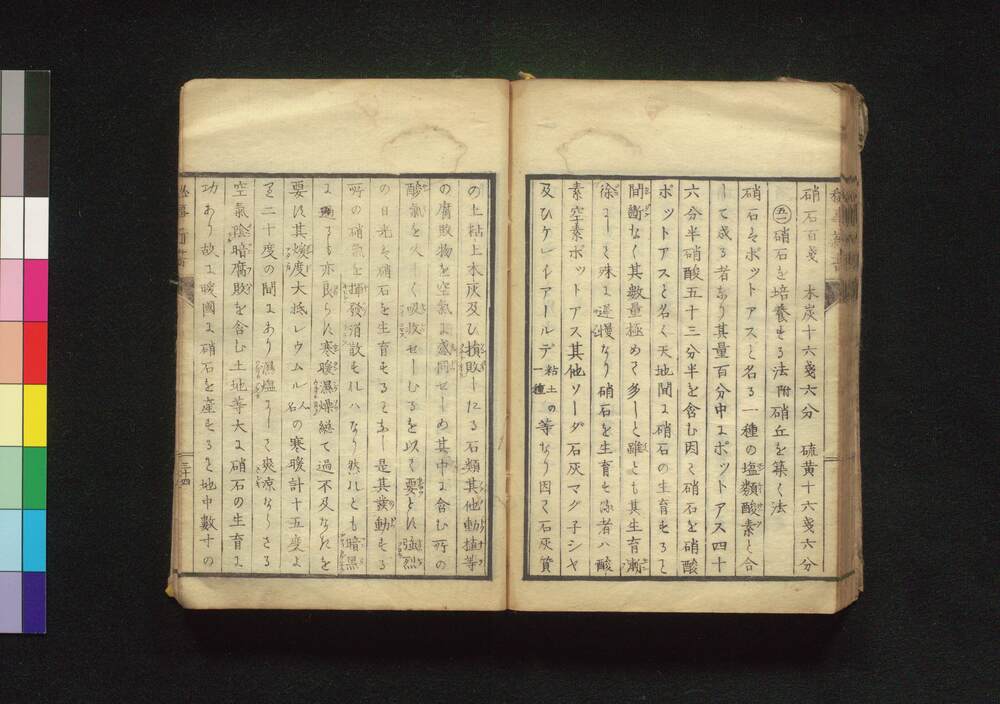 硝石百戔　木炭十六戔六分　硫黄十六戔六分
㊄硝石を培養する法附硝丘を築く法
硝石はポットアスと名る一種の塩類酸素と合
して成る者なり其量百分中にポットアス四十
六分半硝酸五十三分半を含む因て硝石を硝酸
ポットアスと名く天地間に硝石の生育する
間断なく其數量極めて多しと雖とも其生育漸
徐にして殊に遅慢なり硝石を生育する者ハ酸
素窒素ポットアス其他ソーダ石灰マグ子シヤ
及ひケレイアールデ粘土の一種の等なり因て石灰質
の土粘土木灰及ひ損敗したる石類其他動植等
の腐敗物を空氣に感同せしめ其中に含む所の
酸氣を久しく吸收せしむるを以て要とす強烈
の日光は硝石を生育することなし是其發動する
所の硝氣を揮發消散すれハなり然れとも暗黒
に過るも亦良らす寒暖濕燥總て過不及なきを
要す其煖度大抵レウムル人名の寒暖計十五度よ
り二十度の間にあり濕塩にして爽凉ならさる
空氣陰暗腐敗を含む土地等大に硝石の生育に
功あり故に暖國に硝石を産するは地中數寸の
三十四